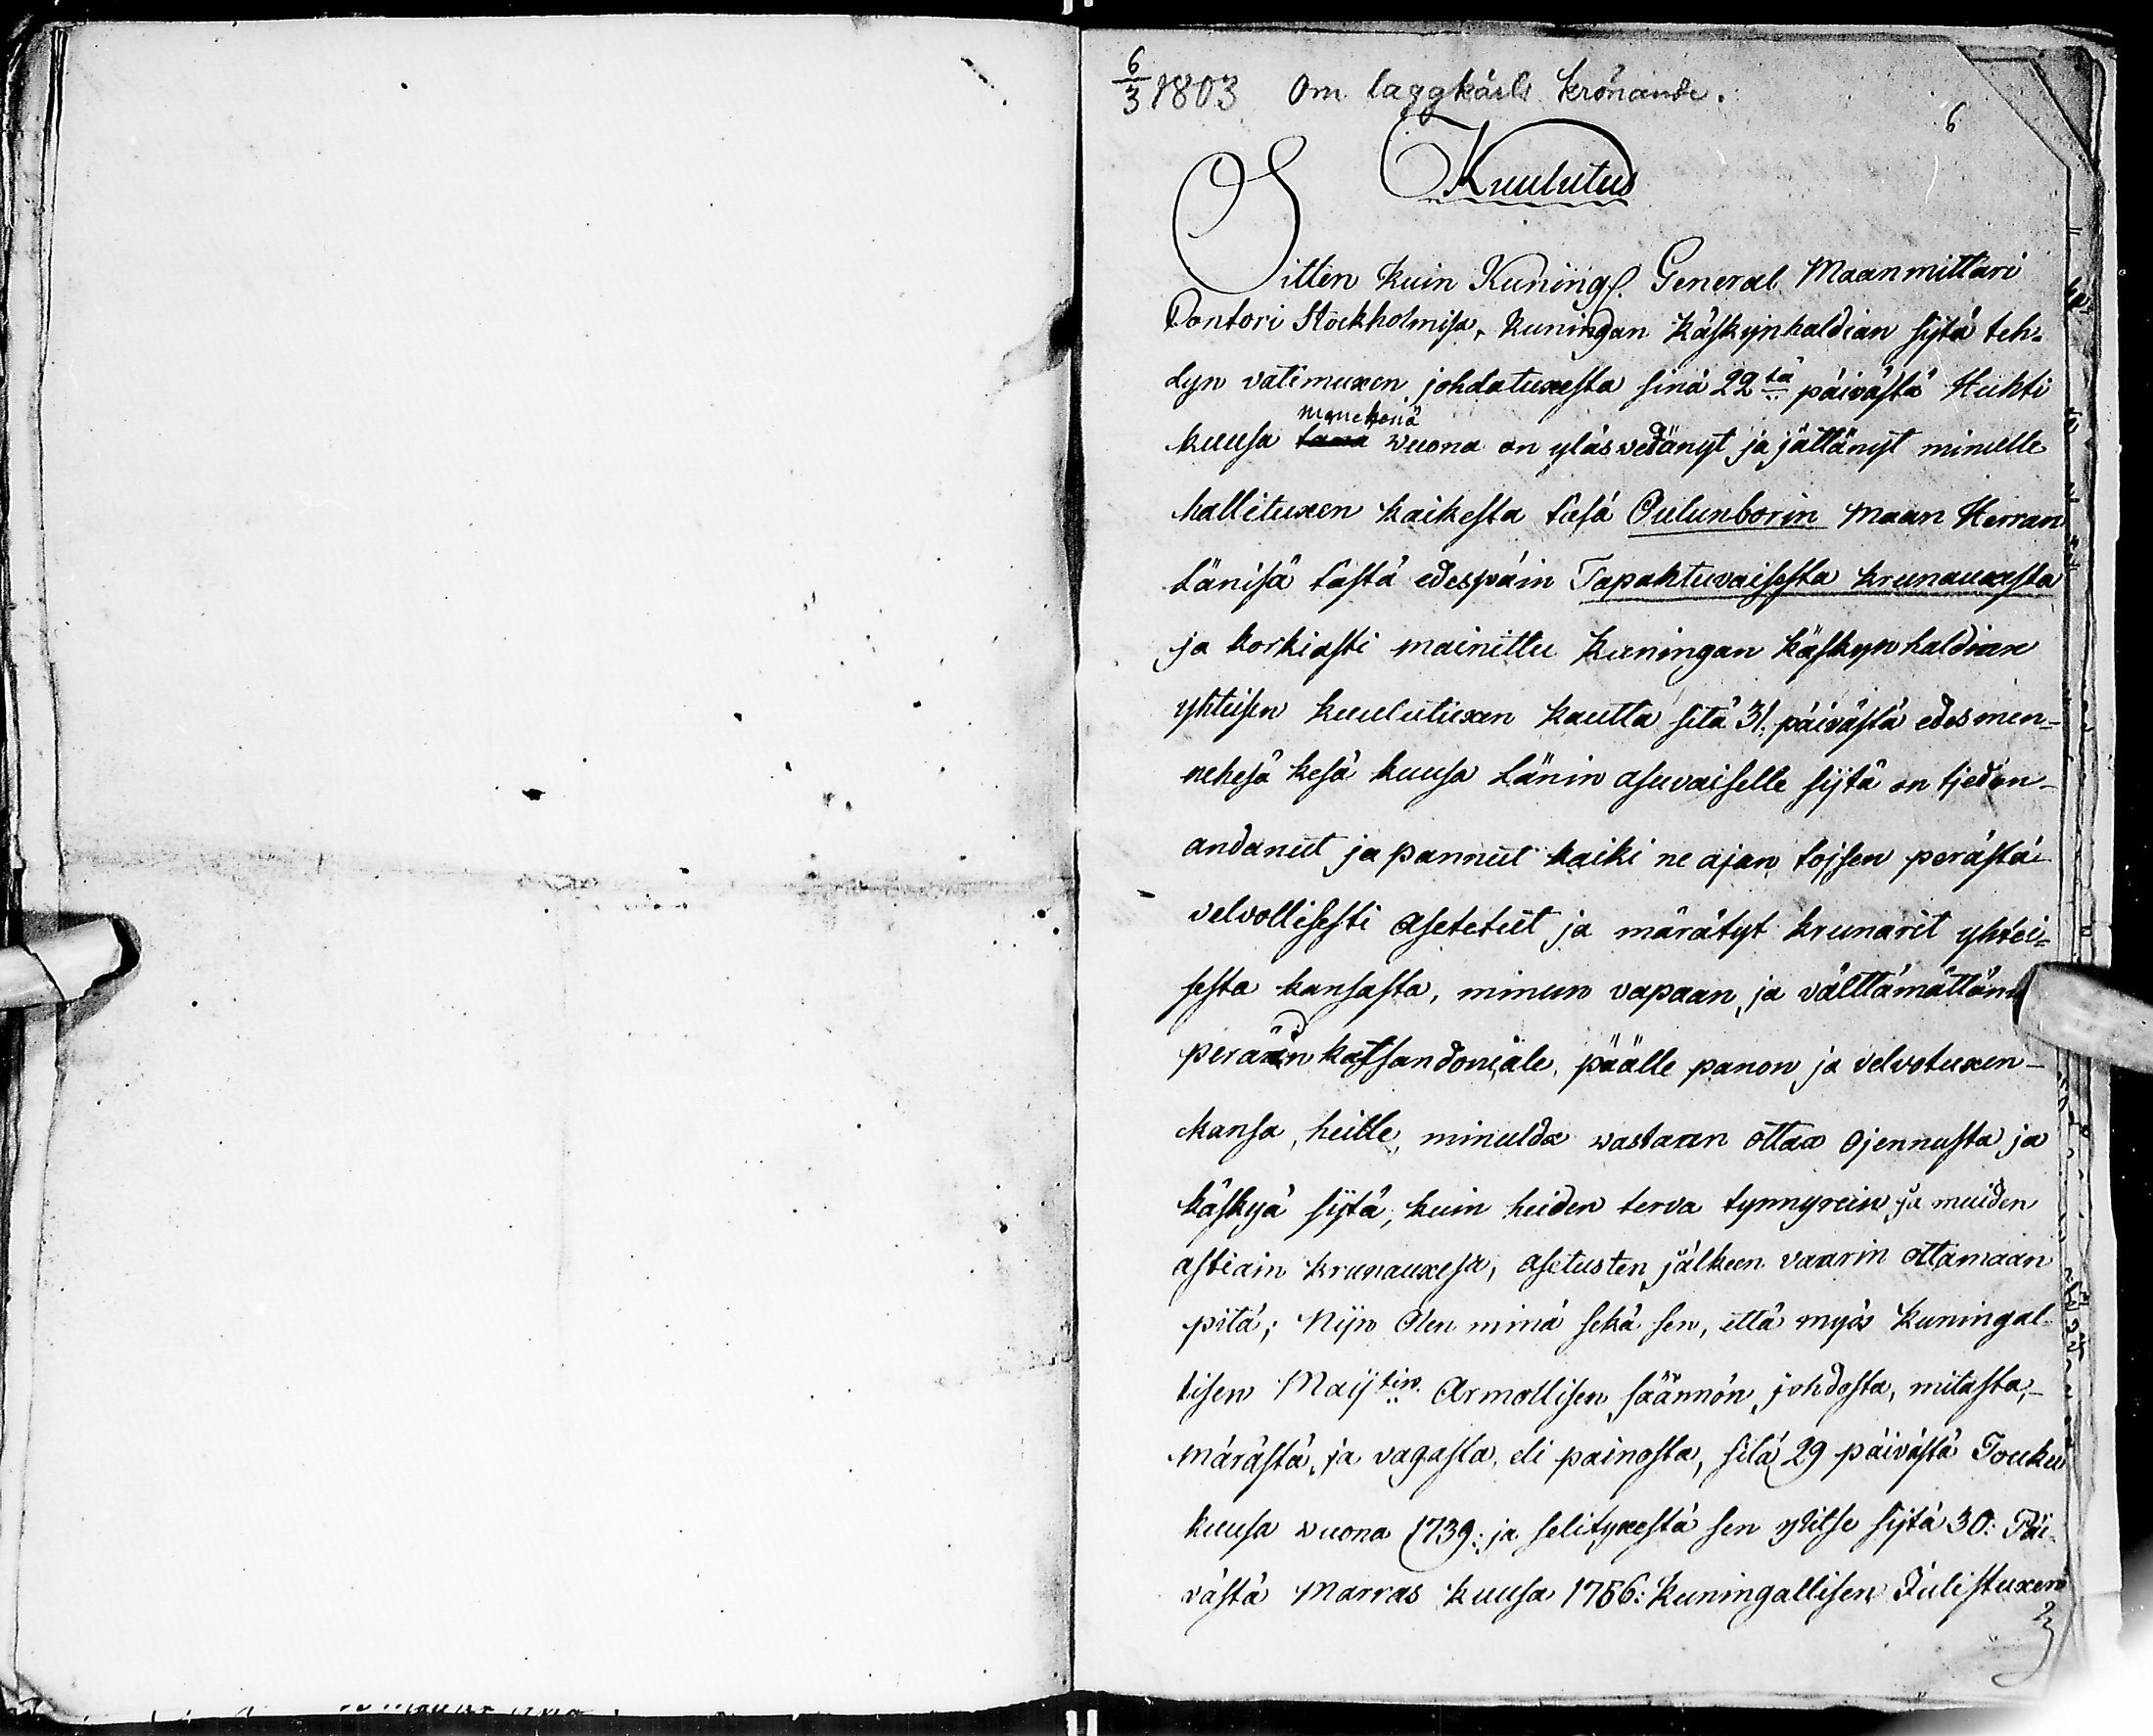 6/3 1803 Om laggkärls krönande.
6
Kuulutus
Sitten kuin Kuningl. General Maanmittari
Contori Stockholmisa, kuningan käskynhaldian sijtä teh-
dyn vatimuxen johdatuxesta sinä 22tä päivästä Huhti
menehenä
kuusa tänä wuona on yläsvedänyt ja jättänyt minulle
hallituxen kaikesta täsä Oulunborin Maan Herran
Länisä tästä edespäin Tapahtuvaisesta krunauxesta
ja korkiasti mainittu kuningan käskyn haldian
yhteisen kuulutuxen kautta sitä 31. päivästä edesmen-
nehesä kesä kuusa Länin asuvaiselle sijtä on tjedon-
andanut ja pannut kaiki ne ajan tojsen perästä
velvollisesti asetetut ja märätyt krunarit yhtei-
sesta kansasta, minun vapaan, ja välttämättäm
perään katsandoni ale, päälle panon ja velvotuxen-
kansa, heille, minulda wastaan ottaa ojennusta ja
käskyä sijtä, kuin heiden terva tynnyrein ja muiden
astiain krunauxesa, asetusten jälkeen vaarin ottamaan
pitä; Nijn Olen minä sekä sen, että myös kuningal-
lisen Maijtin Armollisen säännön johdosta, mitasta,
märästä, ja vagasta, eli painosta, sitä 29 päivästä Touko
kuusa wuona 1739: ja selityxestä sen ylitse sijtä 30: Päi-
västä Marras kuusa 1756: kuningallisen Julistuxen